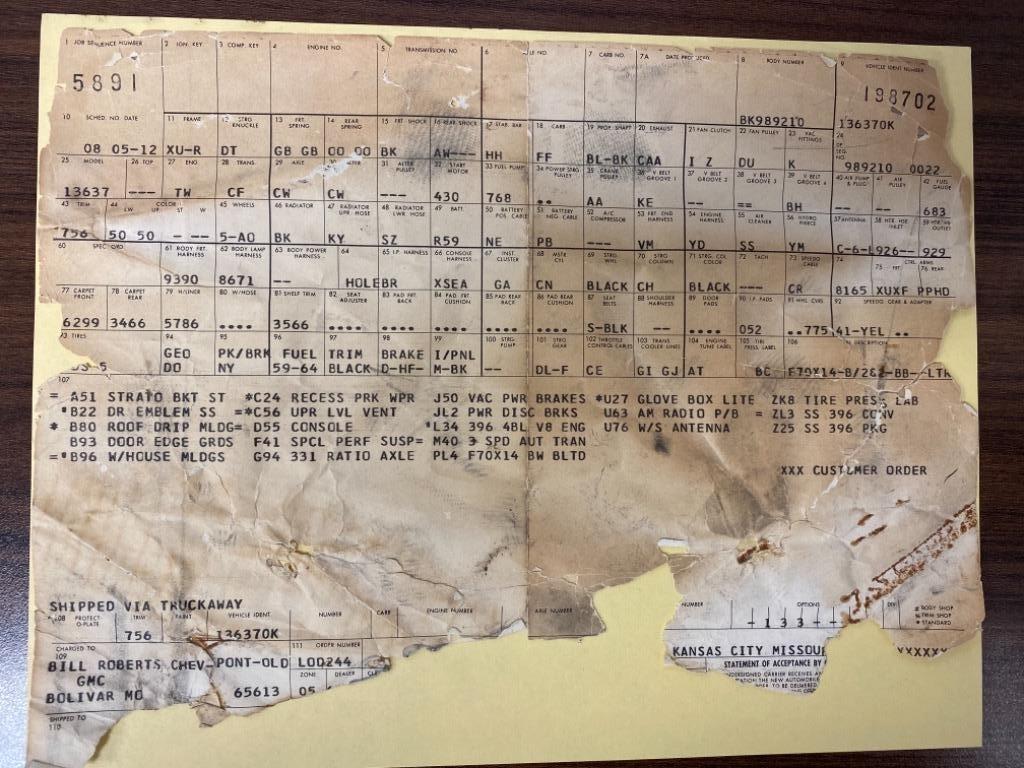 1 JOB SEQUENCE NUMBER 2 IGN. KEY 3 COMP. KEY 4 ENGINE NO. 5 TRANSMISSION NO. 6 LE NO. 7 CARB NO. 7A DATE PRODUCED 8 BODY NUMBER 9 VEHICLE IDENT NUMBER
5891 BK989210 198702
136370K
10 SCHED. NO. DATE 11 FRAME 12 STRG KNUCKLE 13 FRT. SPRING 14 REAR SPRING 15 FRT SHOCK 16 REAR SHOCK 17 STAB. BAR 18 CARB 19 PROP. SHAFT 20 EXHAUST 21 FAN CLUTCH 22 FAN PULLEY 23 VAC FITTINGS 24 SEQ. NO.
08 05-12 XU-R DT GB GB 00 00 BK AW--- HH FF BL-BK CAA I Z DU K 989210 0022
25 MODEL 26 TOP 27 ENG 28 TRANS. 29 AXLE 31 ALTER PULLEY 32 START MOTOR 33 FUEL PUMP 34 POWER STRG PULLEY 35 CRANK PULLEY 36 V BELT GROOVE 1 37 V BELT GROOVE 2 38 V BELT GROOVE 3 39 V BELT GROOVE 4 40 AIR PUMP & PLUG 41 AIR PULLEY 42 FUEL GAUGE
13637 --- TW CF CW CW --- 430 768 .. AA KE -- == BH 683
43 TRIM 44 COLOR LW UP ST W 45 WHEELS 46 RADIATOR 47 RADIATOR UPR HOSE 48 RADIATOR LWR HOSE 49 BATT. 50 BATTERY POS CABLE 51 BATTERY NEG CABLE 52 A/C COMPRESSOR 53 FRT END HARNESS 54 ENGINE HARNESS 55 AIR CLEANER 56 HYDRO PIERCE 57 ANTENNA 58 HTR HSE INLET 59 HTR HSE OUTLET
756 50 50 - -- 5-AO BK KY SZ R59 NE PB --- VM YD SS YM C-6-L926-- 929
60 SPEC. ORD 61 BODY FRT. HARNESS 62 BODY LAMP HARNESS 63 BODY POWER HARNESS 64 65 I.P. HARNESS 66 CONSOLE HARNESS 67 INST. CLUSTER 68 MSTR CYL 69 STRG. WHL 70 STRG COLUMN 71 STRG. COL COLOR 72 TACH 73 SPEEDO CABLE 74 CTRL ARMS 75 FRT. 76 REAR
9390 8671 -- HOLEBR XSEA GA CN BLACK CH BLACK--- CR 8165 XUXF PPHD
77 CARPET FRONT 78 CARPET REAR 79 H/LINER 80 W/HOSE 81 SHELF TRIM 82 SEAT ADJUSTER 83 PAD FRT BACK 84 PAD FRT CUSHION 85 PAD REAR BACK 86 PAD REAR CUSHION 87 SEAT BELTS 88 SHOULDER HARNESS 89 DOOR PADS 90 I.P. PADS 91 WHL CVRS 92 SPEEDO GEAR & ADAPTER
6299 3466 5786 .... 3566 .... .... .... .... .... S-BLK -- .... 052 ..775 41-YEL ..
93 TIRES 94 95 96 97 98 99 100 STRG PUMP 101 STRG GEAR 102 THROTTLE CONTROL CABLES 103 TRANS COOLER LINES 104 ENGINE TUNE LABEL 105 TIRE PRESS LABEL 106 TIRE DESCRIPTION
GEO PK/BRK FUEL TRIM BRAKE I/PNL
DO NY 59-64 BLACK D-HF- M-BK -- DL-F CE GI GJ AT BC F70X14-B/262-BB--LTR
107
= A51 STRATO BKT ST =*C24 RECESS PRK WPR J50 VAC PWR BRAKES *U27 GLOVE BOX LITE ZK8 TIRE PRESS LAB
*B22 DR EMBLEM SS =*C56 UPR LVL VENT JL2 PWR DISC BRKS U63 AM RADIO P/B = ZL3 SS 396 CONV
* B80 ROOF DRIP MLDG= D55 CONSOLE *L34 396 4BL V8 ENG U76 W/S ANTENNA Z25 SS 396 PKG
B93 DOOR EDGE GRDS F41 SPCL PERF SUSP= M40 3 SPD AUT TRAN
=*B96 W/HOUSE MLDGS G94 331 RATIO AXLE PL4 F70X14 BW BLTD
XXX CUSTOMER ORDER
SHIPPED VIA TRUCKAWAY
108 PROTECT-O-PLATE TRIM PAINT VEHICLE IDENT. NUMBER CARB ENGINE NUMBER AXLE NUMBER NUMBER OPTIONS DIV # BODY SHOP * TRIM SHOP = STANDARD
756 136370K -133--
CHARGED TO 109 111 ORDER NUMBER
BILL ROBERTS CHEV-PONT-OLD LOD244 KANSAS CITY MISSOU XXXXXX
GMC ZONE DEALER STATEMENT OF ACCEPTANCE BY
BOLIVAR MO 65613 05
SHIPPED TO 110